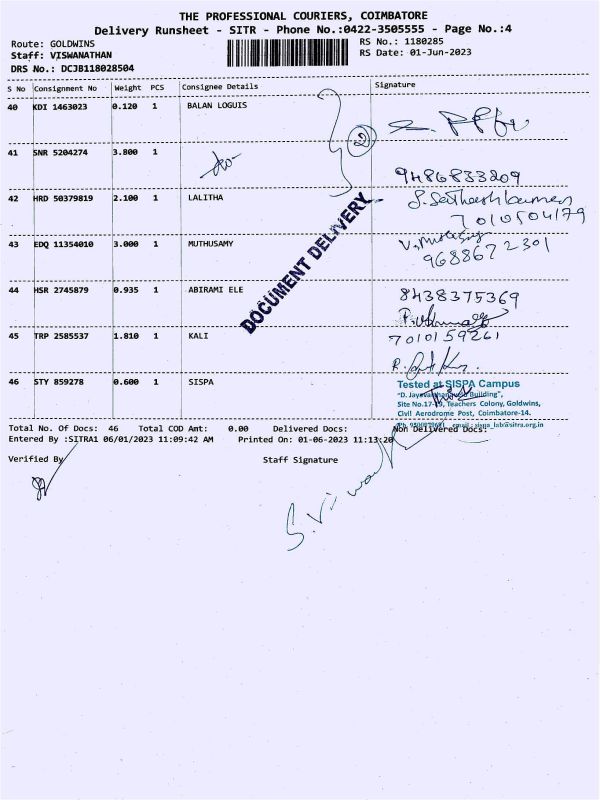 THE PROFESSIONAL COURIERS, COIMBATORE
Delivery Runsheet - SITR - Phone No.:0422-3505555 - Page No.:4
Route: GOLDWINS RS No.: 1180285
Staff: VISWANATHAN RS Date: 01-Jun-2023
DRS No.: DCJB118028504
S No Consignment No Weight PCS Consignee Details Signature
40 KDI 1463023 0.120 1 BALAN LOGUIS
2
41 SNR 5204274 3.800 1
9486833209
42 HRD 50379819 2.100 1 LALITHA
7010504179
43 EDQ 11354010 3.000 1 MUTHUSAMY
9688672301
DOCUMENT DELIVERY
44 HSR 2745879 0.935 1 ABIRAMI ELE 8438375369
45 TRP 2585537 1.810 1 KALI 7010159261
46 STY 859278 0.600 1 SISPA
Tested at SISPA Campus
Building",
Site No.17-19, Teachers Colony, Goldwins,
Civil Aerodrome Post, Coimbatore-14.
Total No. Of Docs: 46 Total COD Amt: 0.00 Delivered Docs: Non Delivered Docs:
Entered By :SITRA1 06/01/2023 11:09:42 AM Printed On: 01-06-2023 11:13:20
Verified By Staff Signature